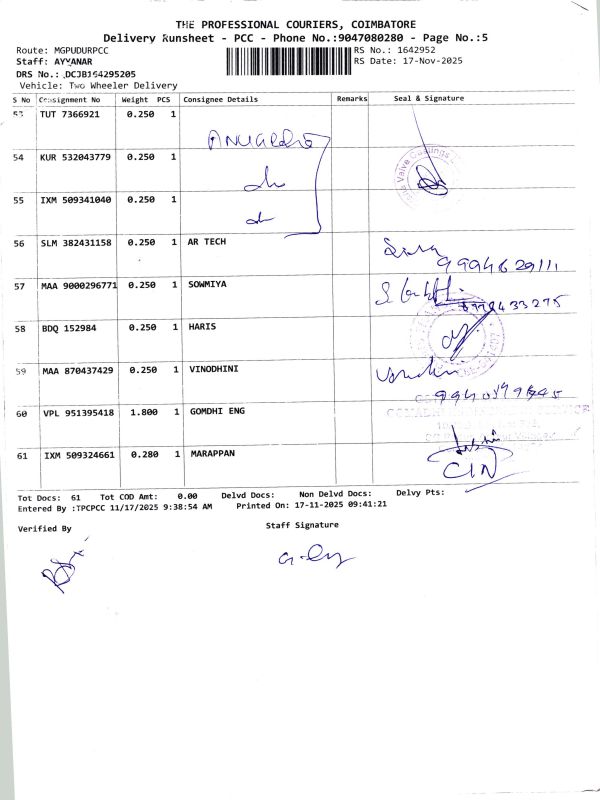 THE PROFESSIONAL COURIERS, COIMBATORE
Delivery Runsheet - PCC - Phone No.:9047080280 - Page No.:5
Route: MGPUDURPCC
RS No.: 1642952
Staff: AYYANAR
RS Date: 17-Nov-2025
DRS No.: DCJBJ64295205
Vehicle: Two Wheeler Delivery
S No Consignment No Weight PCS Consignee Details Remarks Seal & Signature
53 TUT 7366921 0.250 1
54 KUR 532043779 0.250 1
55 IXM 509341040 0.250 1
56 SLM 382431158 0.250 1 AR TECH
9994629111
57 MAA 9000296771 0.250 1 SOWMIYA
58 BDQ 152984 0.250 1 HARIS
59 MAA 870437429 0.250 1 VINODHINI
60 VPL 951395418 1.800 1 GOMDHI ENG
61 IXM 509324661 0.280 1 MARAPPAN
Tot Docs: 61 Tot COD Amt: 0.00 Delvd Docs: Non Delvd Docs: Delvy Pts:
Entered By :TPCPCC 11/17/2025 9:38:54 AM Printed On: 17-11-2025 09:41:21
Verified By
Staff Signature